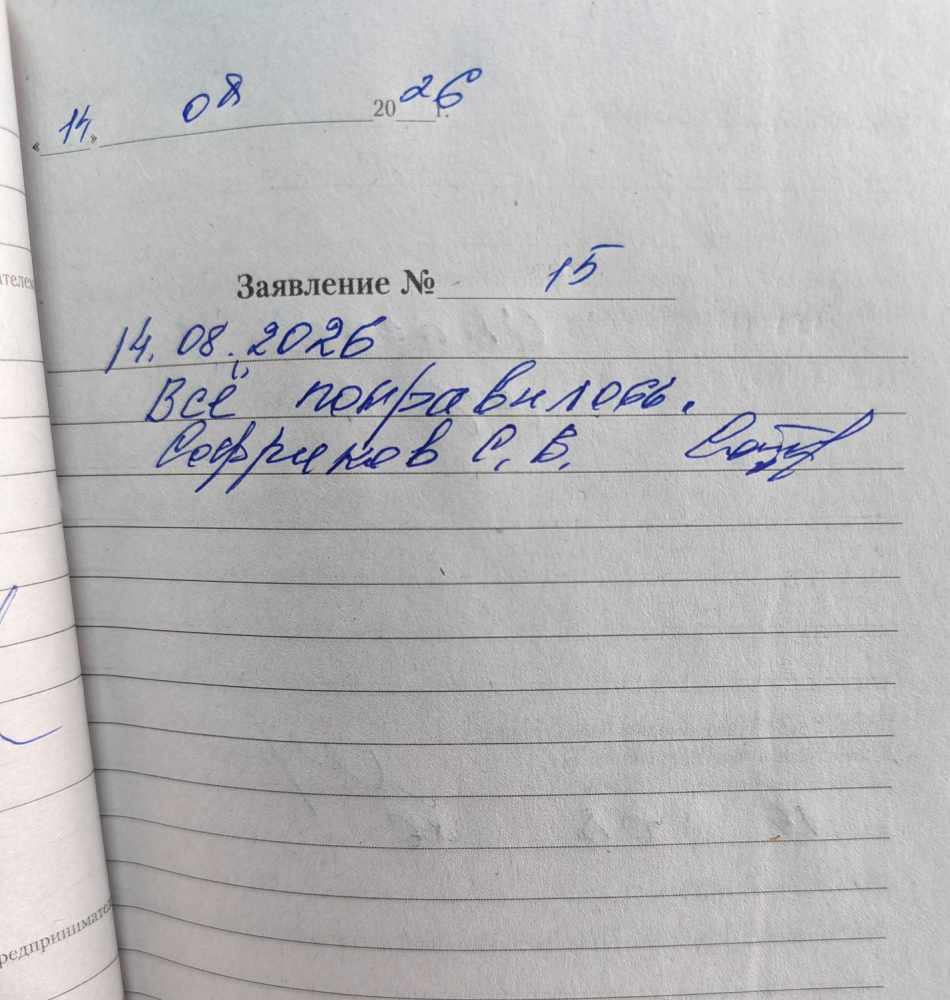 «14» 08 2026 г.
Заявление № 15
14.08.2026
Всё понравилось.
Софриков С. В.